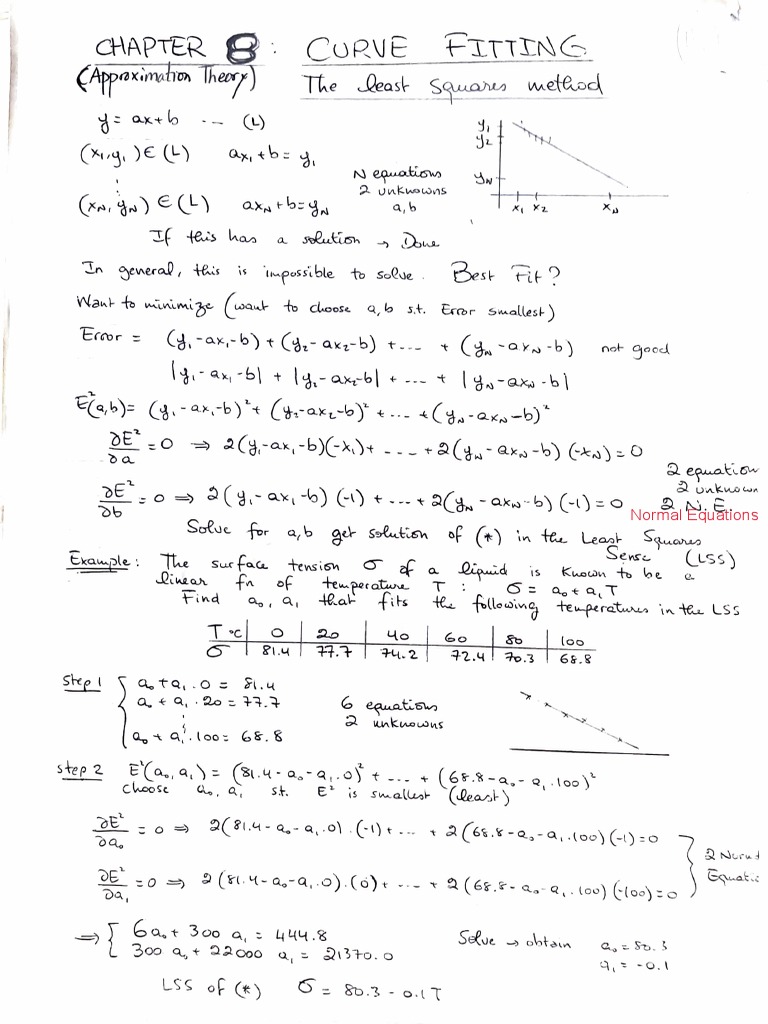 CHAPTER 8: CURVE FITTING
(Approximation Theory) The least squares method
y = ax+b --- (L)
y₁
y₂
y_N
x₁ x₂ x_N
(x₁,y₁) ∈ (L) ax₁+b = y₁
⋮
N equations
2 unknowns
a,b
(x_N, y_N) ∈ (L) ax_N+b = y_N
If this has a solution → Done
In general, this is impossible to solve. Best Fit?
Want to minimize (want to choose a,b s.t. Error smallest)
Error = (y₁-ax₁-b) + (y₂-ax₂-b) + ... + (y_N-ax_N-b) not good
|y₁-ax₁-b| + |y₂-ax₂-b| + ... + |y_N-ax_N-b|
E²(a,b) = (y₁-ax₁-b)² + (y₂-ax₂-b)² + ... + (y_N-ax_N-b)²
∂E²/∂a = 0 ⇒ 2(y₁-ax₁-b)(-x₁) + ---- + 2(y_N-ax_N-b)(-x_N) = 0
2 equation
2 unknown
∂E²/∂b = 0 ⇒ 2(y₁-ax₁-b)(-1) + ... + 2(y_N-ax_N-b)(-1) = 0 2 N.E.
Normal Equations
Solve for a,b get solution of (*) in the Least Squares
Sense (LSS)
Example: The surface tension σ of a liquid is known to be a
linear fn of temperature T: σ = a₀ + a₁T
Find a₀, a₁ that fits the following temperatures in the LSS
T °C 0 20 40 60 80 100
σ 81.4 77.7 74.2 72.4 70.3 68.8
Step 1 { a₀ + a₁.0 = 81.4
a₀ + a₁.20 = 77.7
⋮
a₀ + a₁.100 = 68.8
6 equations
2 unknowns
Step 2 E²(a₀,a₁) = (81.4-a₀-a₁.0)² + ... + (68.8-a₀-a₁.100)²
choose a₀, a₁ s.t. E² is smallest (least)
∂E²/∂a₀ = 0 ⇒ 2(81.4-a₀-a₁.0).(-1) + ... + 2(68.8-a₀-a₁.100)(-1) = 0
2 Normal
Equatio
∂E²/∂a₁ = 0 ⇒ 2(81.4-a₀-a₁.0).(0) + ... + 2(68.8-a₀-a₁.100)(-100) = 0
⇒ { 6a₀ + 300 a₁ = 444.8
300 a₀ + 22000 a₁ = 21370.0
Solve → obtain a₀ = 80.3
a₁ = -0.1
LSS of (*) σ = 80.3 - 0.1T